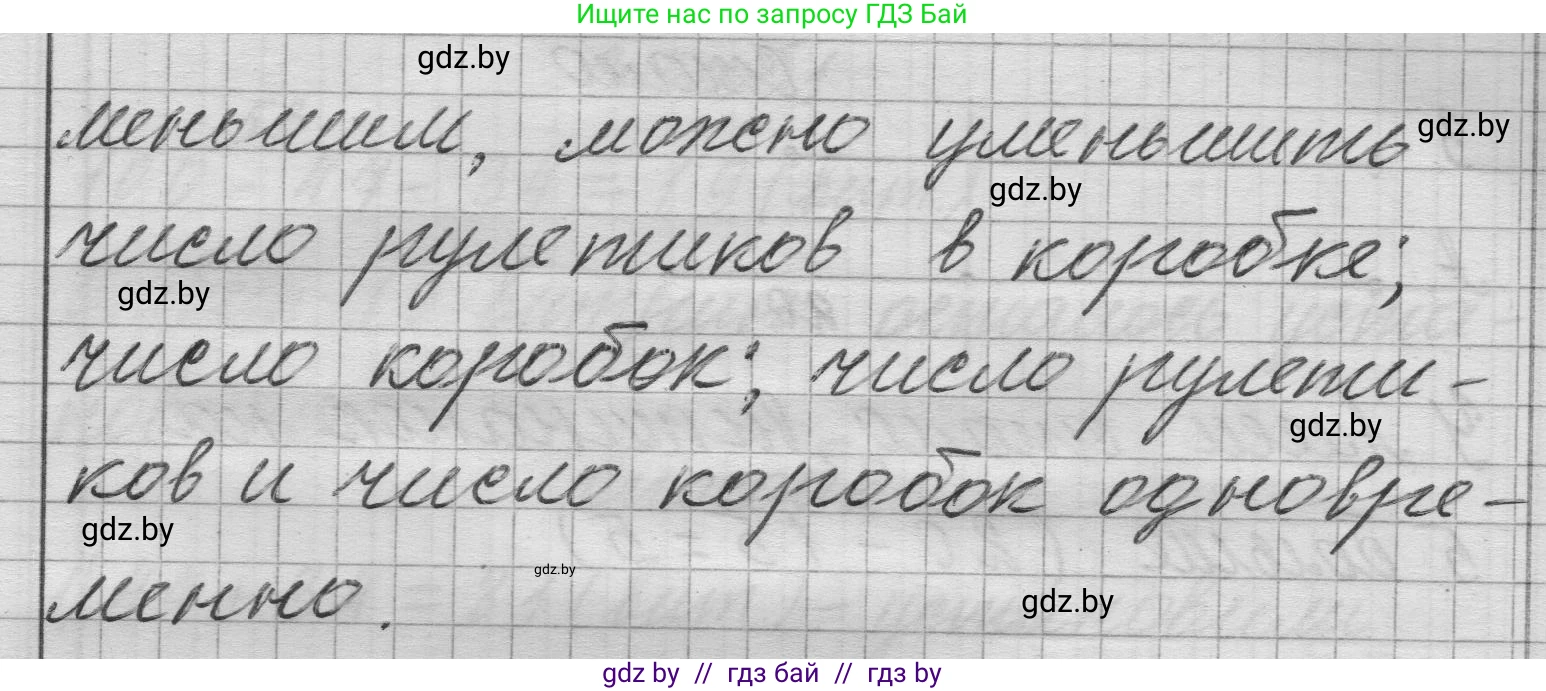 Ищите нас по запросу ГДЗ Бай
gdz.by
меньшим, можно уменьшить
gdz.by
gdz.by
число рулетиков в коробке;
gdz.by
число коробок; число рулети-
gdz.by
ков и число коробок одновре-
gdz.by
gdz.by
менно.
gdz.by
gdz by // гдз бай // гдз by